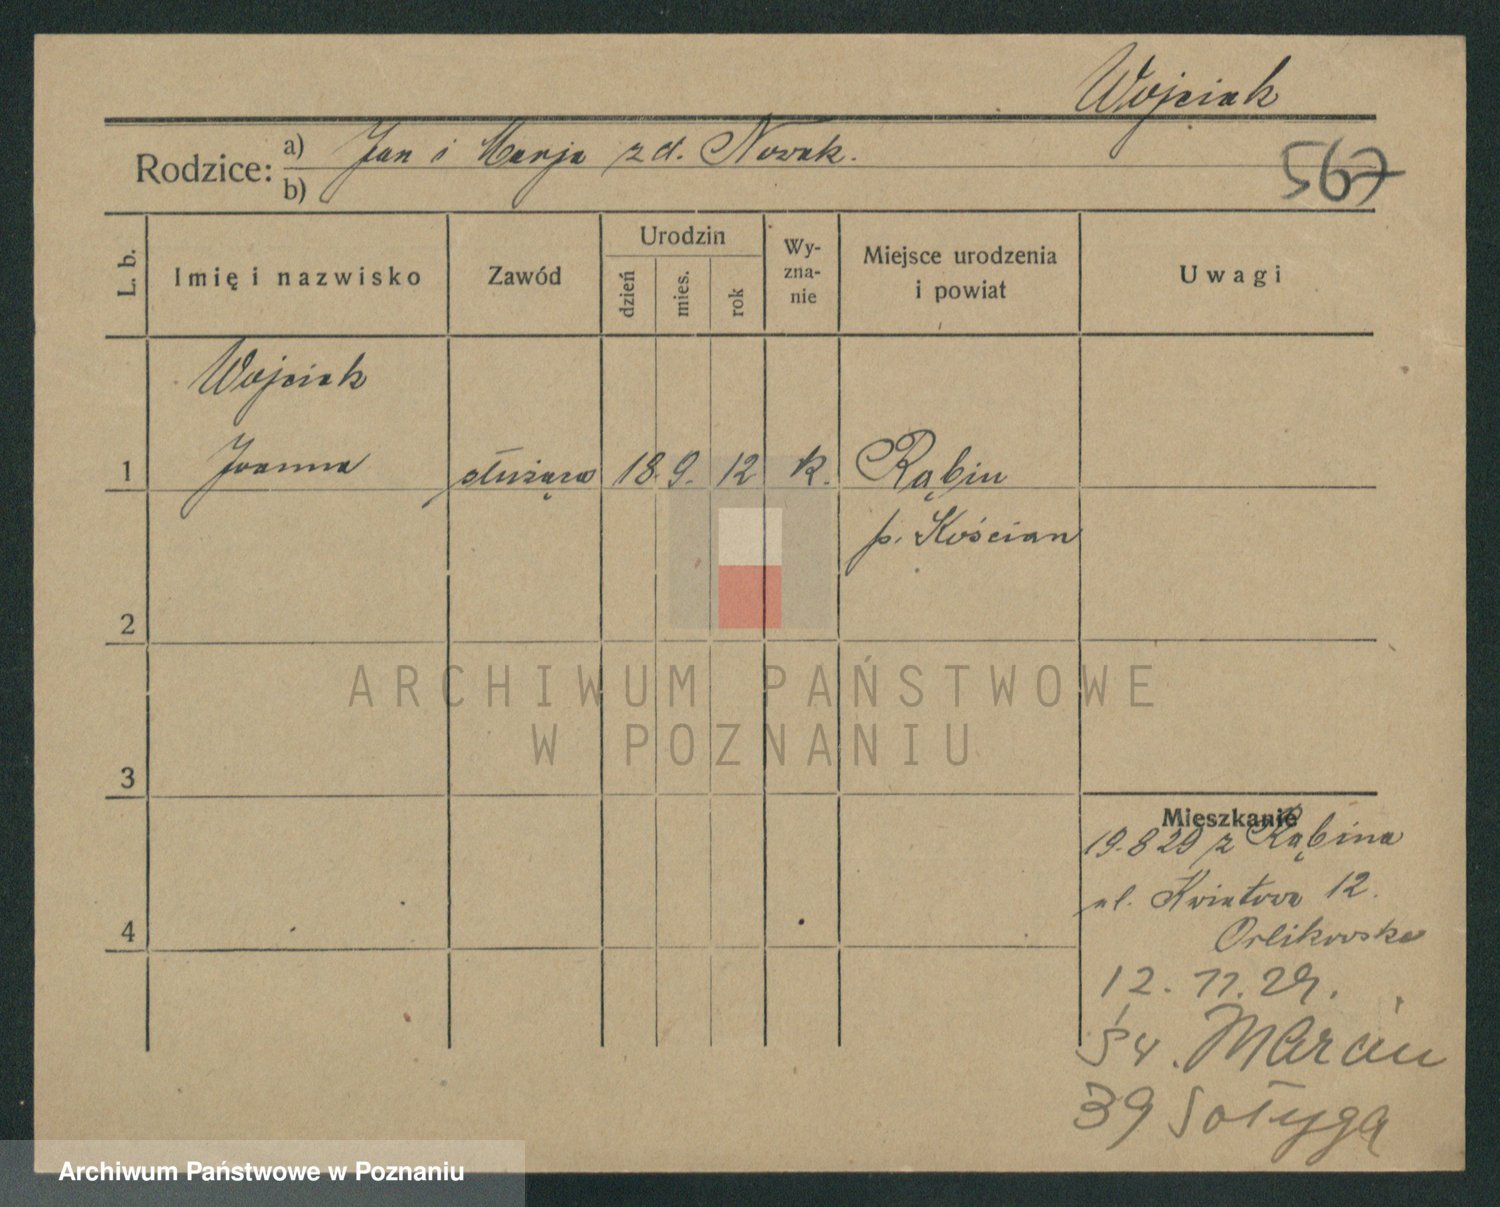 Wojciak
567
Rodzice: a) Jan i Marja z d. Nowak.
b)
L. b.
Imię i nazwisko
Zawód
Urodzin
dzień
mies.
rok
Wy-
zna-
nie
Miejsce urodzenia
i powiat
Uwagi
Wojciak
1 Joanna służąca 18. 9. 12 k. Rąbin
p. Kościan
2
3
4
Mieszkanie
19.8 29 z Rąbina
ul. Kwiatowa 12.
Orlikowska
12. 11. 29.
Św. Marcin
39 Sołyga
ARCHIWUM PAŃSTWOWE
W POZNANIU
Archiwum Państwowe w Poznaniu